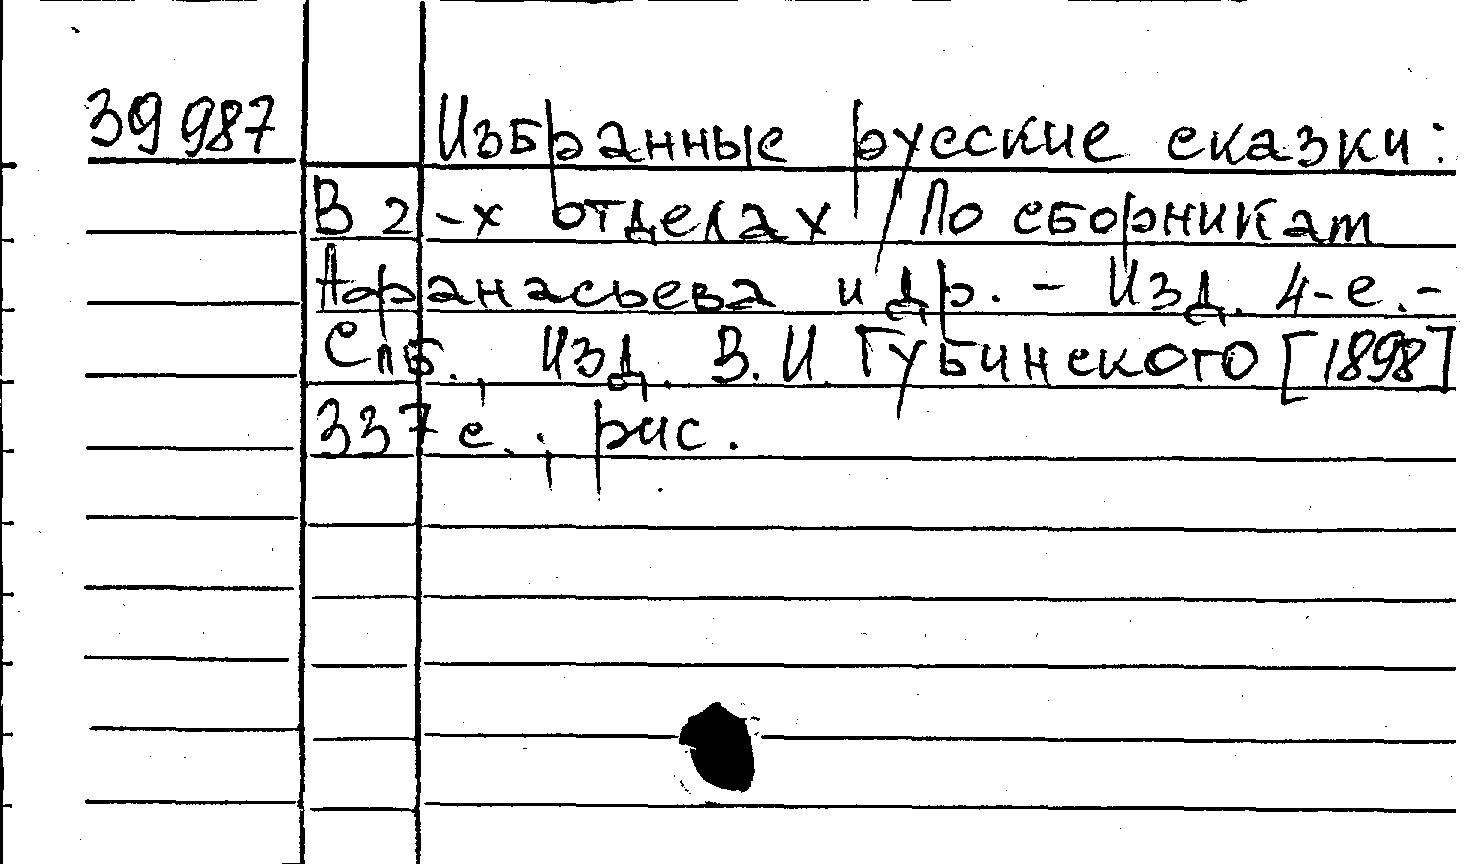 39987 Избранные русские сказки:
В 2-х отделах / По сборникам
Афанасьева и др. - Изд. 4-е.-
Спб., Изд. В.И. Губинского [1898]
337 с.; рис.